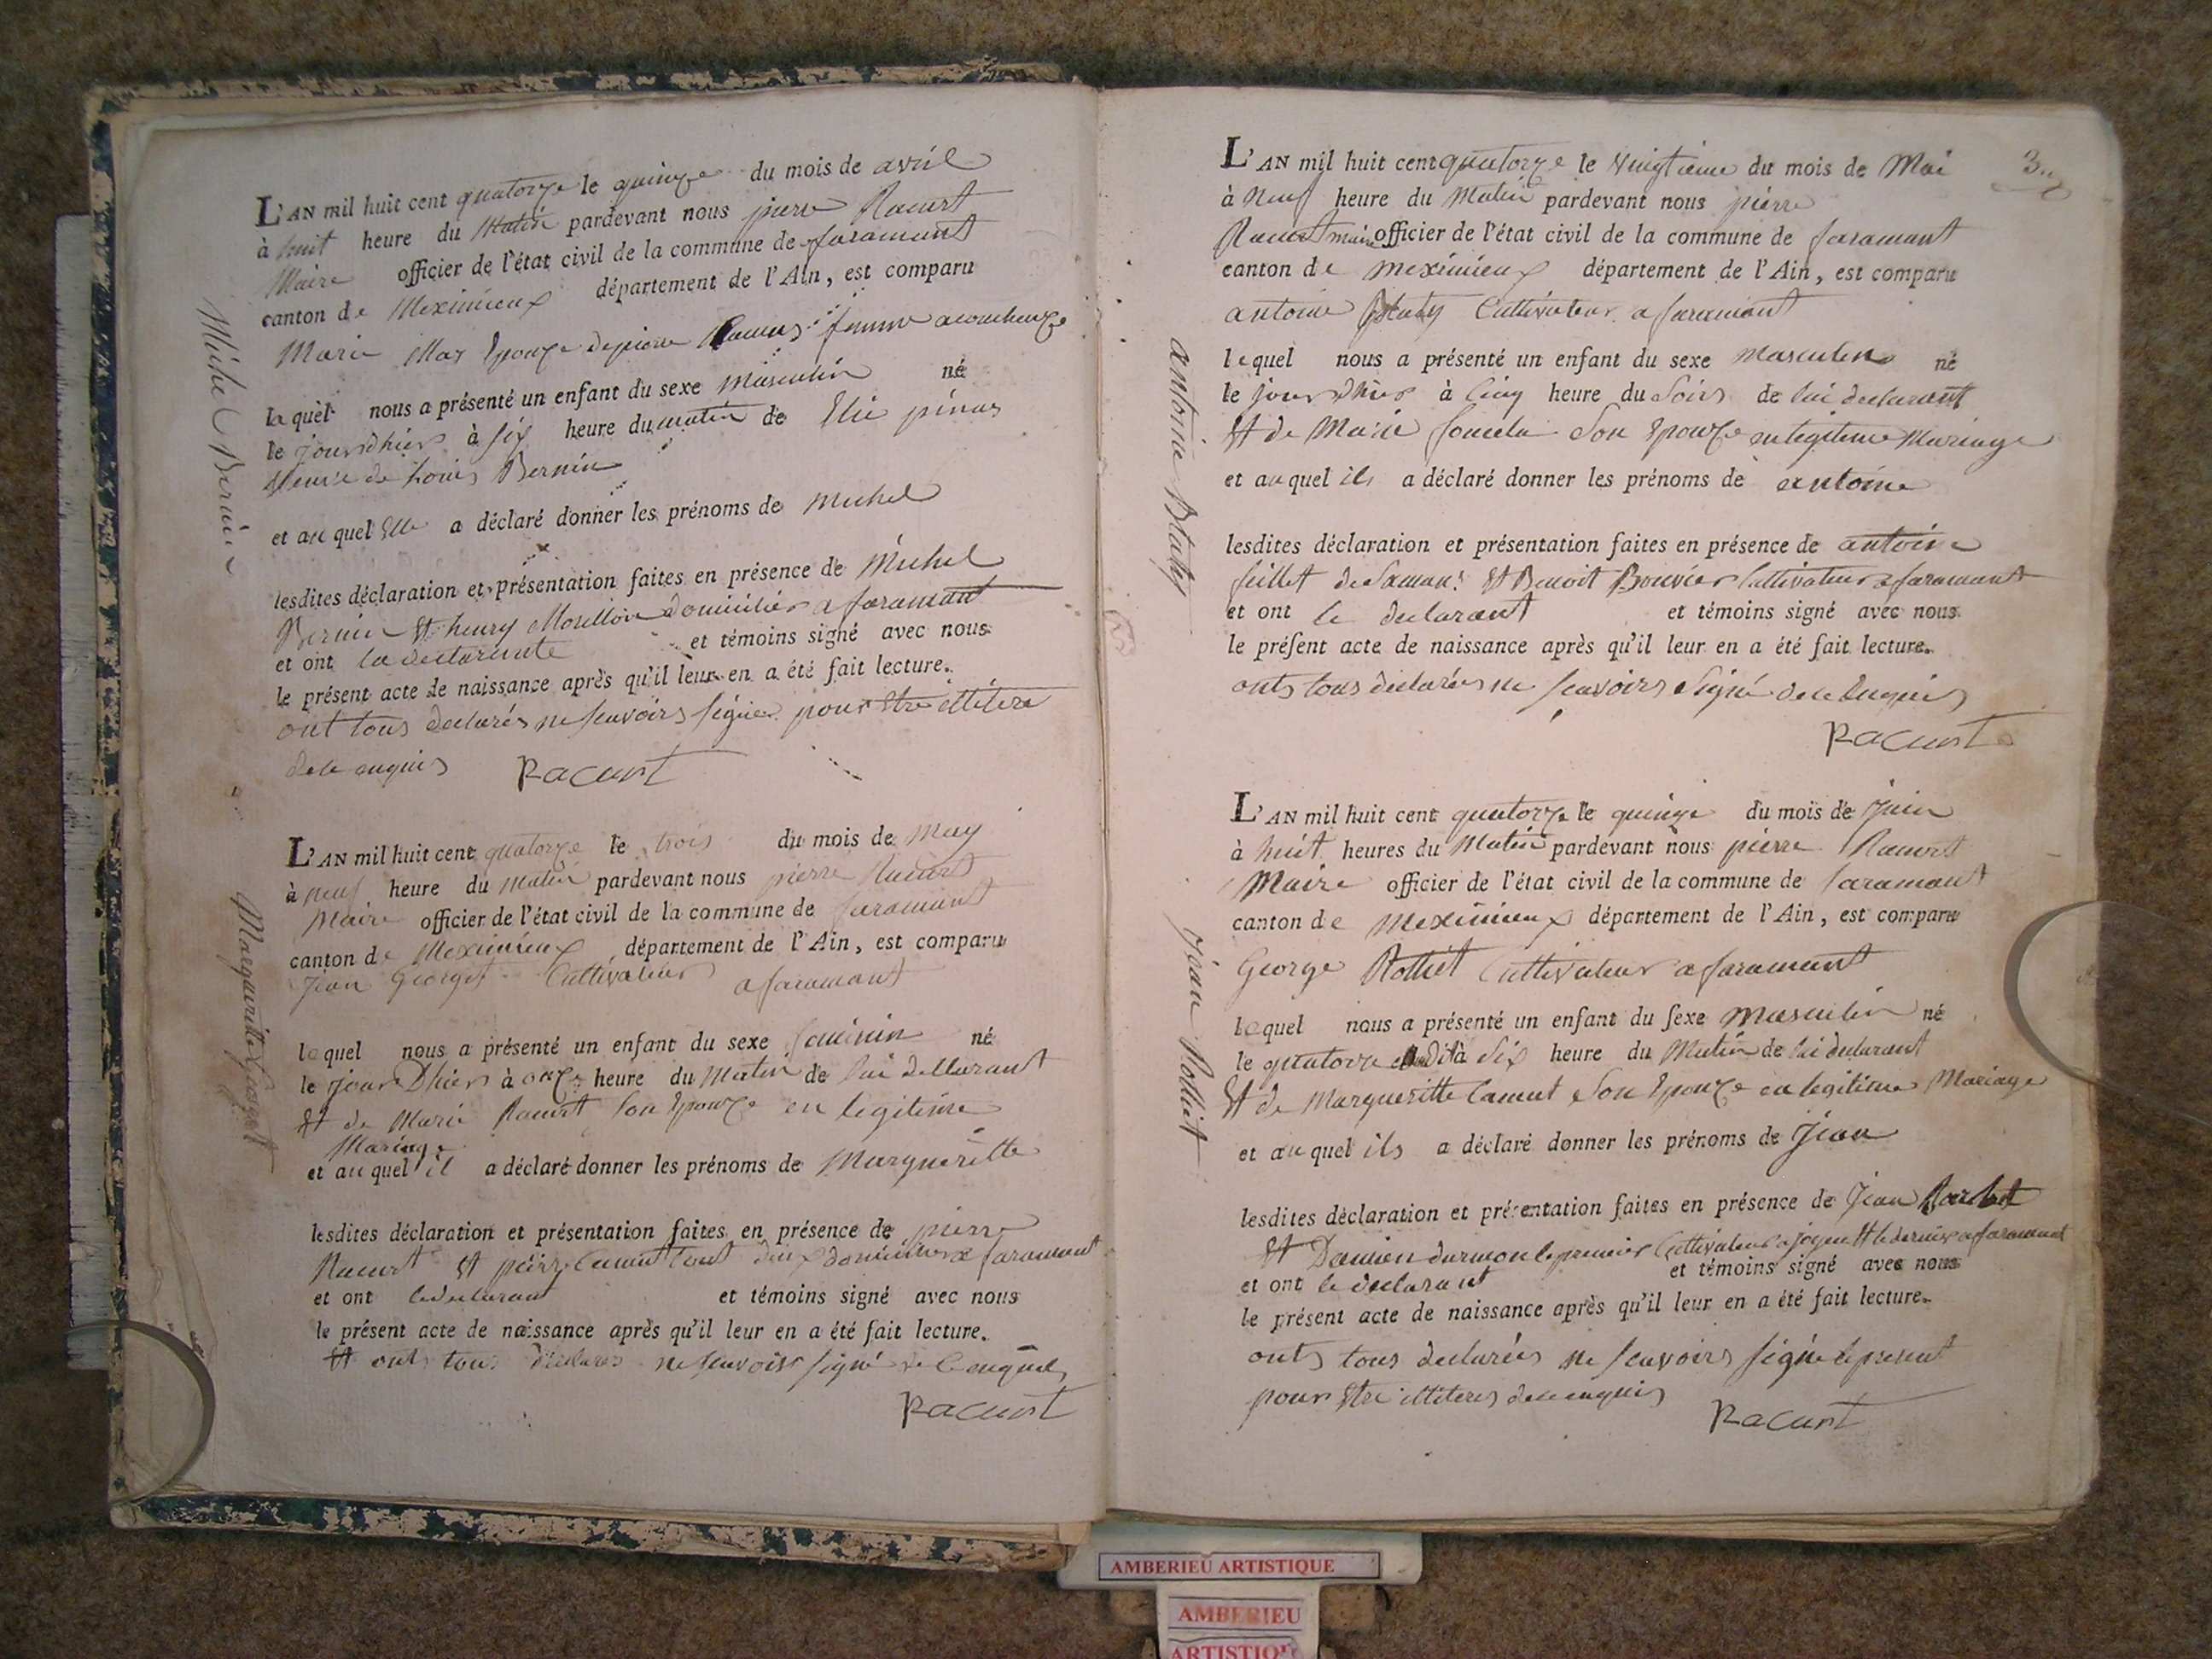 L'AN mil huit cent quatorze le quinze du mois de avril
à huit heure du Matin pardevant nous pierre Racurt
Maire officier de l'état civil de la commune de faramant
canton de Meximieux département de l'Ain, est comparu
Marie Mas Epouze de pierre femme acoucheuze
laquel nous a présenté un enfant du sexe masculin né
le jourdhier à six heure du matin de
Veuve de Louis Bernin
et au quel Elle a déclaré donner les prénoms de Michel
lesdites déclaration et présentation faites en présence de Michel
Bernin Et henry domiciliés a faramant
et ont la declarante et témoins signé avec nous
le présent acte de naissance après qu'il leur en a été fait lecture.
ont tous declarés ne scavoirs signer pour Etre illitere
de ce enquis Racurt
Michel Bernin
L'AN mil huit cent quatorze le trois du mois de May
à neuf heure du matin pardevant nous pierre Racurt
Maire officier de l'état civil de la commune de faramant
canton de Meximieux département de l'Ain, est comparu
Jean Georget Cultivateur a faramant
lequel nous a présenté un enfant du sexe feminin né
le jour Dhier à onze heure du matin de lui declarant
Et de Marie Racurt son Epouze en legitime
Mariage
et au quel il a déclaré donner les prénoms de Margueritte
lesdites déclaration et présentation faites en présence de pierre
Racurt Et pierre Camut tout deux domiciliers a faramant
et ont le declarant et témoins signé avec nous
le présent acte de naissance après qu'il leur en a été fait lecture.
Et onts tous declares ne scavoirs signé de ce enquis
Racurt
Margueritte Georget
3
L'AN mil huit cent quatorze le vingtieme du mois de Mai
à Neuf heure du Matin pardevant nous pierre
Racurt maire officier de l'état civil de la commune de faramant
canton de meximieux département de l'Ain, est comparu
antoine Blaty Cultivateur a faramant
lequel nous a présenté un enfant du sexe masculin né
le jourdhier à Cinq heure du Soirs de lui declarant
Et de Marie Son Epouze en legitime Mariage
et au quel ils a déclaré donner les prénoms de antoine
lesdites déclaration et présentation faites en présence de antoine
Et Benoit Bouvier Cultivateur a faramant
et ont le declarant et témoins signé avec nous
le présent acte de naissance après qu'il leur en a été fait lecture.
onts tous declarés ne scavoirs Signé de ce enquis
Racurt
antoine Blaty
L'AN mil huit cent quatorze le quinze du mois de Juin
à huit heures du Matin pardevant nous pierre Racurt
Maire officier de l'état civil de la commune de faramant
canton de meximieux département de l'Ain, est comparu
George Rolliet Cultivateur a faramant
lequel nous a présenté un enfant du sexe masculin né
le quatorze dudit à Six heure du Matin de lui declarant
Et de Margueritte Camut Son Epouze en legitime Mariage
et au quel ils a déclaré donner les prénoms de Jean
lesdites déclaration et présentation faites en présence de Jean
Et Damien durmon le premier Cultivateur a joyeu Et le dernier a faramant
et ont le declarant et témoins signé avec nous
le présent acte de naissance après qu'il leur en a été fait lecture.
onts tous declarés ne scavoirs signé le present
pour Etre illiteres de ce enquis
Racurt
Jean Rolliet
AMBERIEU ARTISTIQUE
AMBERIEU
ARTISTIQUE